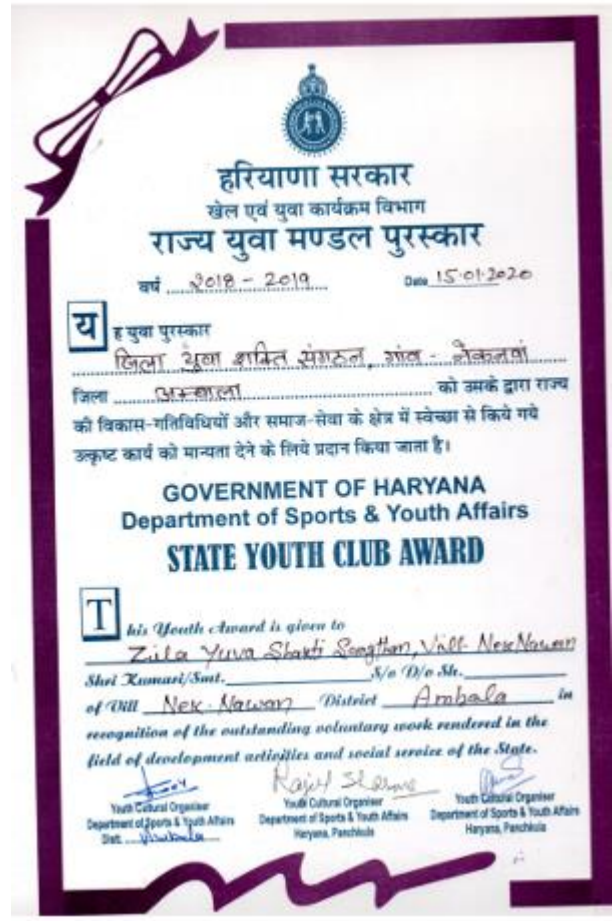 हरियाणा सरकार
खेल एवं युवा कार्यक्रम विभाग
राज्य युवा मण्डल पुरस्कार
वर्ष 2018 - 2019 Date 15.01.2020
यह युवा पुरस्कार
जिला युवा शक्ति संगठन, गांव - नेकनवां
जिला अम्बाला को उसके द्वारा राज्य
की विकास-गतिविधियों और समाज-सेवा के क्षेत्र में स्वेच्छा से किये गये
उत्कृष्ट कार्य को मान्यता देने के लिये प्रदान किया जाता है।
GOVERNMENT OF HARYANA
Department of Sports & Youth Affairs
STATE YOUTH CLUB AWARD
This Youth Award is given to
Zila Yuva Shakti Sangthan, Vill- Nek Nawan
Shri Kumari/Smt. S/o D/o Sh.
of Vill Nek Nawan District Ambala in
recognition of the outstanding voluntary work rendered in the
field of development activities and social service of the State.
Rajesh Sharma
Youth Cultural Organiser Youth Cultural Organiser Youth Cultural Organiser
Department of Sports & Youth Affairs Department of Sports & Youth Affairs Department of Sports & Youth Affairs
Distt. Ambala Haryana, Panchkula Haryana, Panchkula